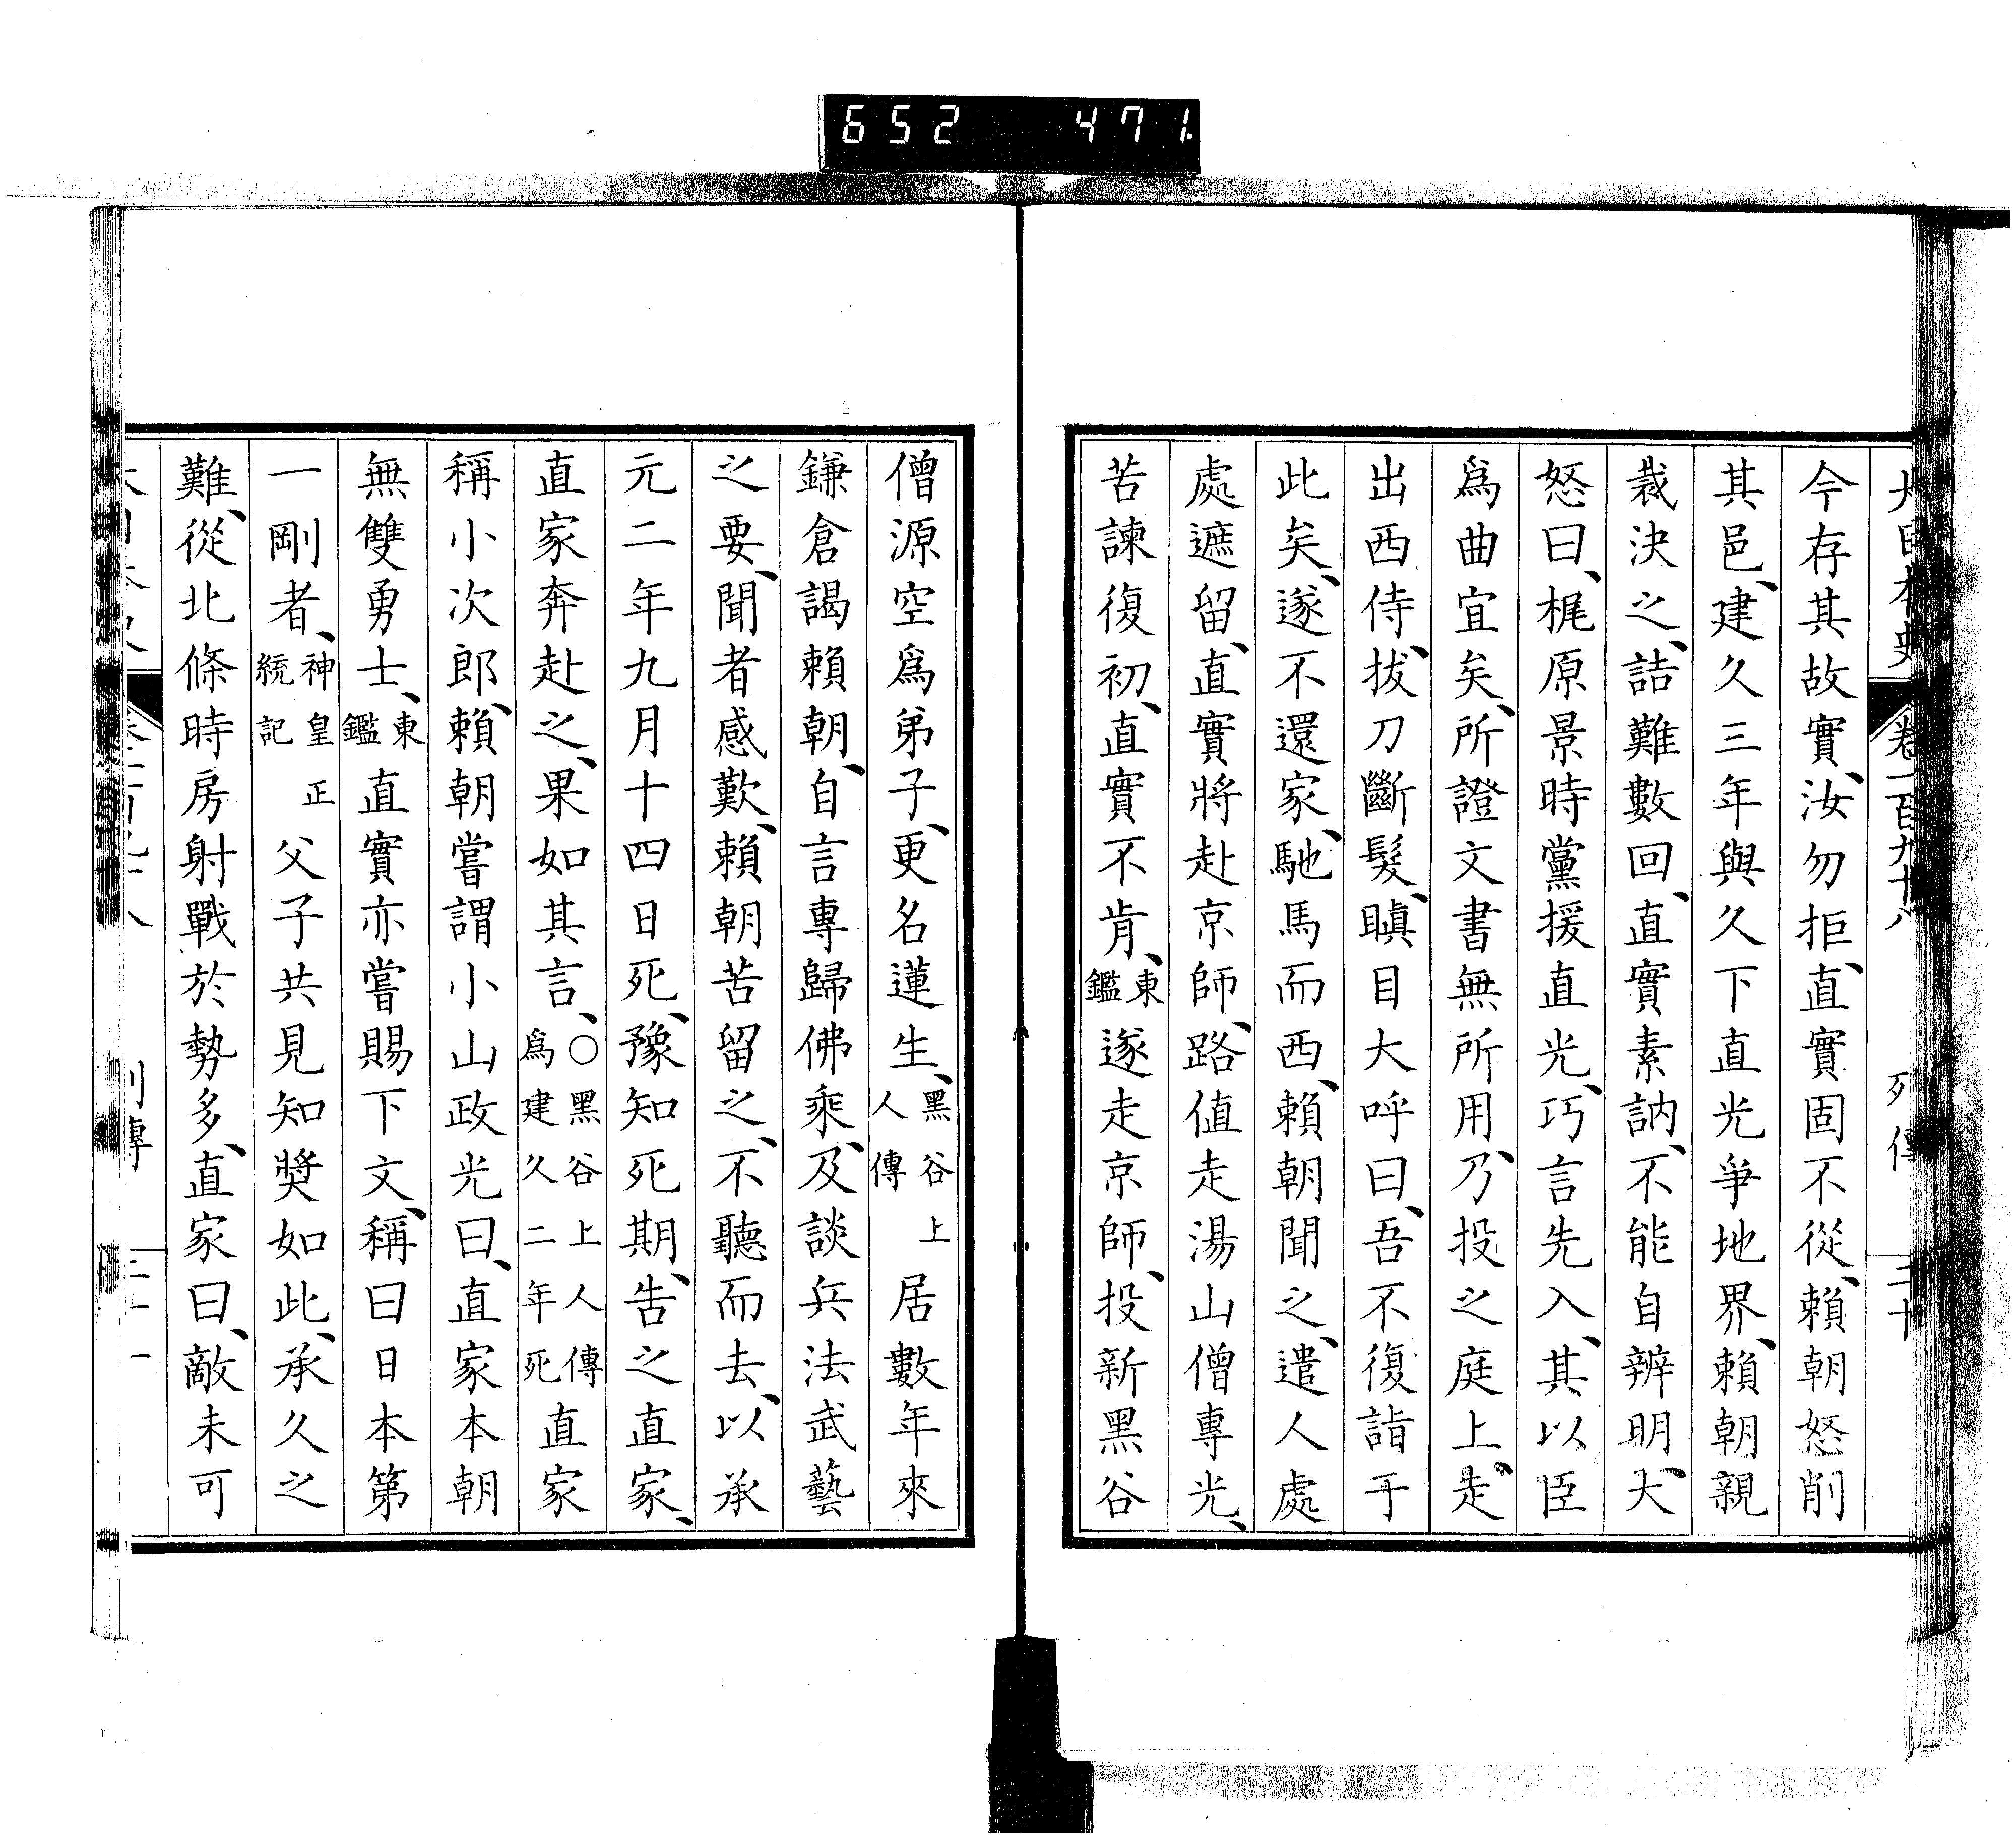 652 471
大日本史 卷一百九十八 列傳 二十
今存其故實、汝勿拒、直實固不從、賴朝怒削
其邑、建久三年與久下直光爭地界、賴朝親
裁決之、詰難數回、直實素訥、不能自辨明、大
怒曰、梶原景時黨援直光、巧言先入、其以臣
爲曲宜矣、所證文書無所用、乃投之庭上、走
出西侍、拔刀斷髮、瞋目大呼曰、吾不復詣于
此矣、遂不還家、馳馬而西、賴朝聞之、遣人處
處遮留、直實將赴京師、路値走湯山僧專光、
苦諫復初、直實不肯、東鑑遂走京師、投新黑谷
僧源空爲弟子、更名蓮生、黑谷上人傳居數年來
鎌倉謁賴朝、自言專歸佛乘、及談兵法武藝
之要、聞者感歎、賴朝苦留之、不聽而去、以承
元二年九月十四日死、豫知死期、告之直家、
直家奔赴之、果如其言、○黑谷上人傳爲建久二年死直家
稱小次郎、賴朝嘗謂小山政光曰、直家本朝
無雙勇士、東鑑直實亦嘗賜下文、稱曰日本第
一剛者、神皇正統記父子共見知奬如此、承久之
難、從北條時房射戰於勢多、直家曰、敵未可
列傳 二十一